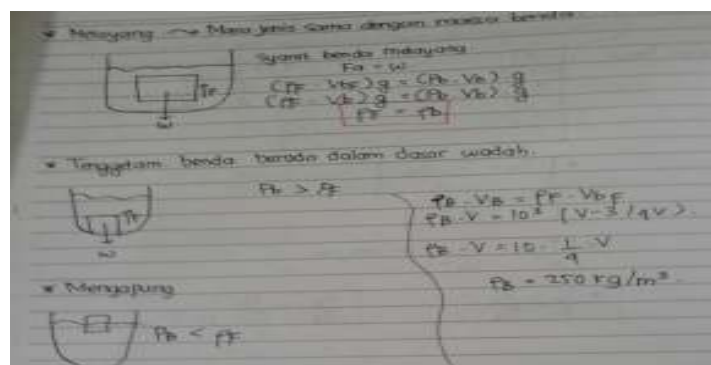 * Melayang → Massa jenis sama dengan massa benda
Syarat benda melayang
Fa = w
(ρf . Vbf) g = (ρb . Vb) g
(ρf . Vb) g = (ρb . Vb) g
ρf = ρb
w
* Tenggelam benda berada dalam dasar wadah.
ρb > ρf
w
* Mengapung
ρb < ρf
ρB . VB = ρF . VbF
ρB . V = 10³ (V - 3/4V).
ρB . V = 10 . 1/4 V
ρB = 250 kg/m³.